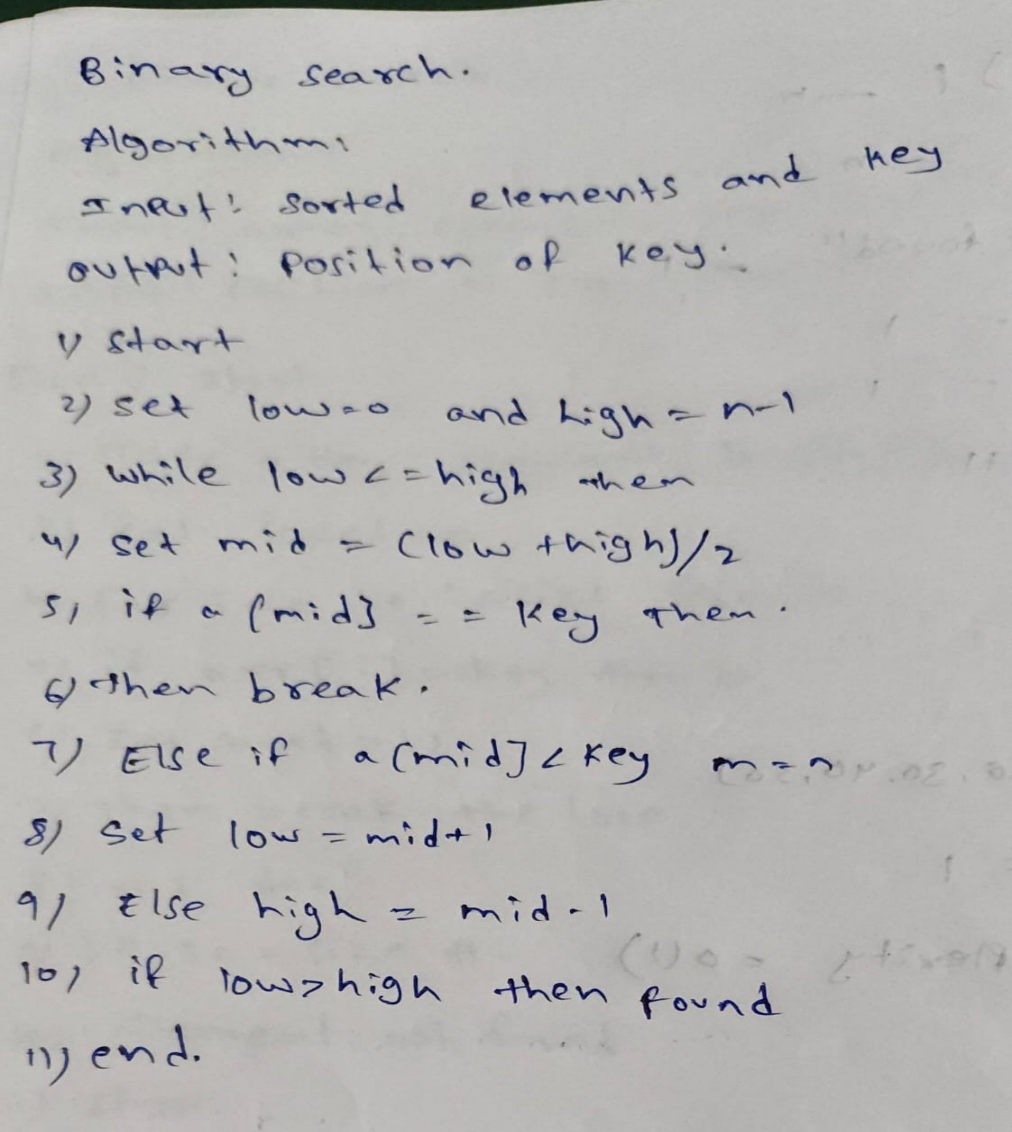 Binary search.
Algorithm:
Input: Sorted elements and key
output: Position of key.
1) Start
2) set low=0 and high = n-1
3) while low <= high then
4) set mid = (low + high)/2
5) if a [mid] == key then.
6) then break.
7) Else if a[mid] < key
8) Set low = mid+1
9) Else high = mid-1
10) if low>high then found
11) end.